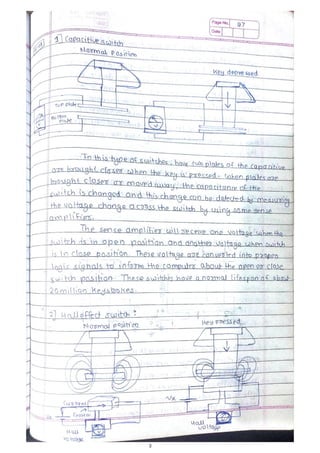 Page No. 97
Date
1] Capacitive switch
Normal Position
Key depressed
Top plate
Bottom plate
In this type of switches, have two plates of the capacitive
are brought closer when the key is pressed. When plates are
brought closer or moved away, the capacitance of the
switch is changed and this change can be detected by measuring
the voltage change across the switch by using some sense
amplifier.
The sense amplifier will receive one voltage when the
switch is in open position and another voltage when switch
is in close position. These voltage are converted into proper
logic signals to inform the computer about the open or close
switch position. These switches have a normal lifespan of about
20 million keystrokes.
2] Hall effect switch:
Normal position
Key Pressed
Crystal
Hall
voltage
Hall
voltage